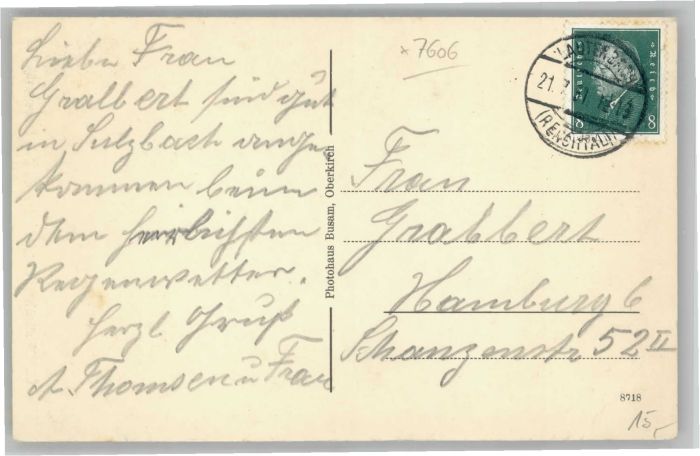 Liebe Frau
Gralbert sind gut
in Sulzbach ange
kommen beim
dem herrlichsten
Regenwetter.
Herzl Gruß
A. Thomsen u Frau
Photohaus Busam, Oberkirch
× 7606
Deutsches Reich
8 8
LAUTENBACH
21.
(RENCHTAL)
Frau
Grabbert
Hamburg 6
Schanzenstr 52 II
8718
15,-